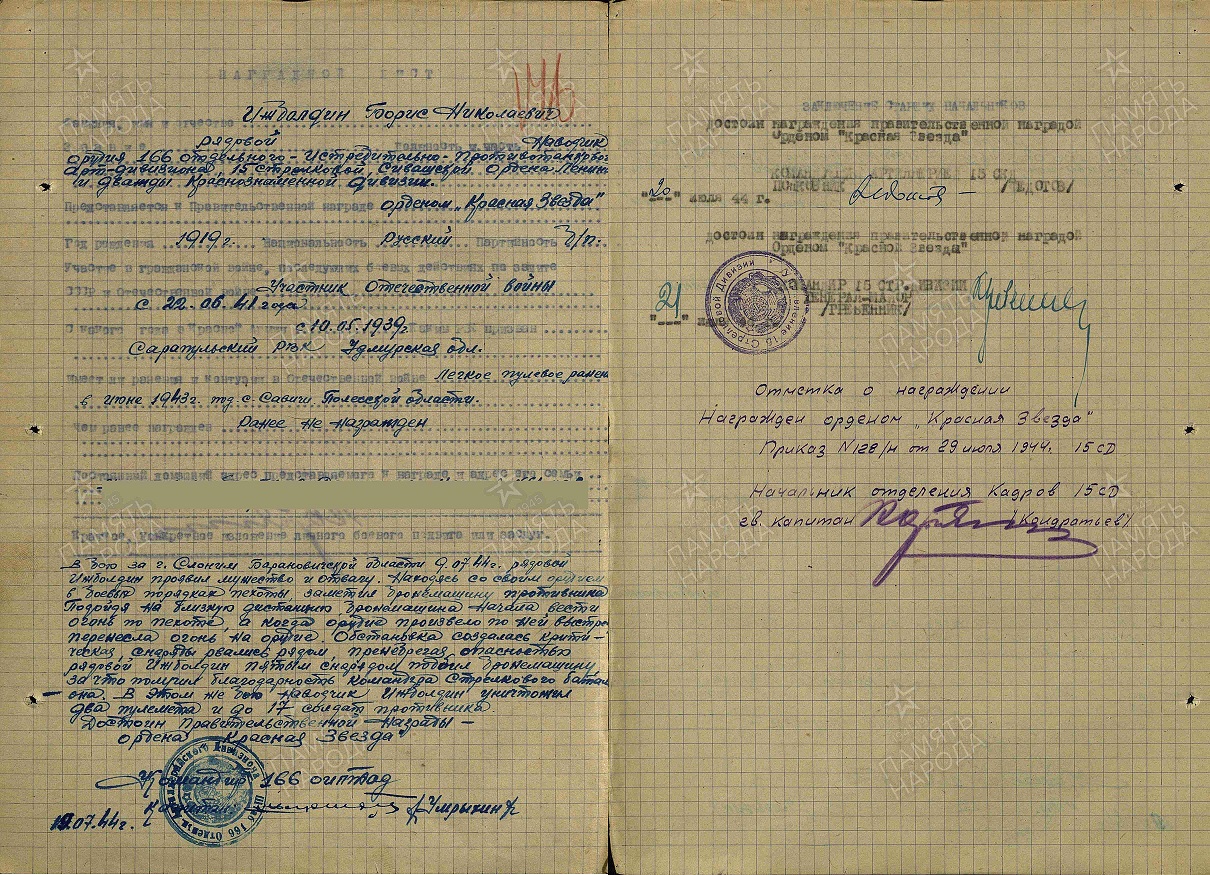 НАГРАДНОЙ ЛИСТ
146
Фамилия, имя и отчество Ижболдин Борис Николаевич
Звание рядовой Должность и часть Наводчик
орудия 166 отдельного-Истребительно-Противотанковог
Арт-дивизиона, 15 Стрелковой, Сивашской, Ордена Ленин
и Дважды Краснознаменной дивизии.
Представляется к Правительственной награде орденом „Красная Звезда"
Год рождения 1919 г. Национальность Русский Партийность б/п.
Участие в гражданской войне, последующих боевых действиях по защите
СССР и Отечественной войне Участник Отечественной войны
с 22.06.41 года
С какого года в Красной Армии с 10.05.1939 г. Каким РВК призван
Сарапульский РВК Удмурская обл.
Имеет ли ранения и контузии в Отечественной войне Легкое пулевое ранен
в июне 1943 г. под с. Савичи Полесской области.
Чем ранее награжден Ранее не награжден
Постоянный домашний адрес представляемого к награде и адрес его семьи
Краткое, конкретное изложение личного боевого подвига или заслуг.
В бою за г. Слоним Барановичской области 9.07.44 г. рядовой
Ижболдин проявил мужество и отвагу. Находясь со своим орудием
в боевых порядках пехоты, заметил бронемашину противника
Подойдя на близкую дистанцию бронемашина начала вести
огонь по пехоте, а когда орудие произвело по ней выстре
перенесла огонь на орудие. Обстановка создалась крити-
ческая, снаряды рвались рядом, пренебрегая опасностью
рядовой Ижболдин пятым снарядом подбил бронемашину
за что получил благодарность командира Стрелкового батал
она. В этом же бою наводчик Ижболдин уничтожил
два пулемета и до 17 солдат противника.
Достоин Правительственной Награды —
ордена „Красная Звезда"
Командир 166 оиптад
Капитан /Умрыхин/
19.07.44 г.
Штаб 166 Отдельн. Артиллерийского Дивизиона
ЗАКЛЮЧЕНИЕ СТАРШИХ НАЧАЛЬНИКОВ
Достоин награждения правительственной наградой
Орденом "Красная Звезда"
КОМАНДУЮЩ. АРТИЛЛЕРИЕЙ 15 СКД
ПОЛКОВНИК /ФЕДОТОВ/
"20" июля 44 г.
Достоин награждения правительственной наградой
Орденом "Красной Звезды"
КОМАНДИР 15 СТР. ДИВИЗИИ
ГЕНЕРАЛ-МАЙОР
/ГРЕБЕННИК/
"21"
Управление 15 Стрелковой Дивизии
Отметка о награждении
Награжден орденом „Красная Звезда"
Приказ N128/н от 29 июля 1944г. 15 СД
Начальник отделения Кадров 15 СД
гв. капитан /Кондратьев/
ПАМЯТЬ НАРОДА